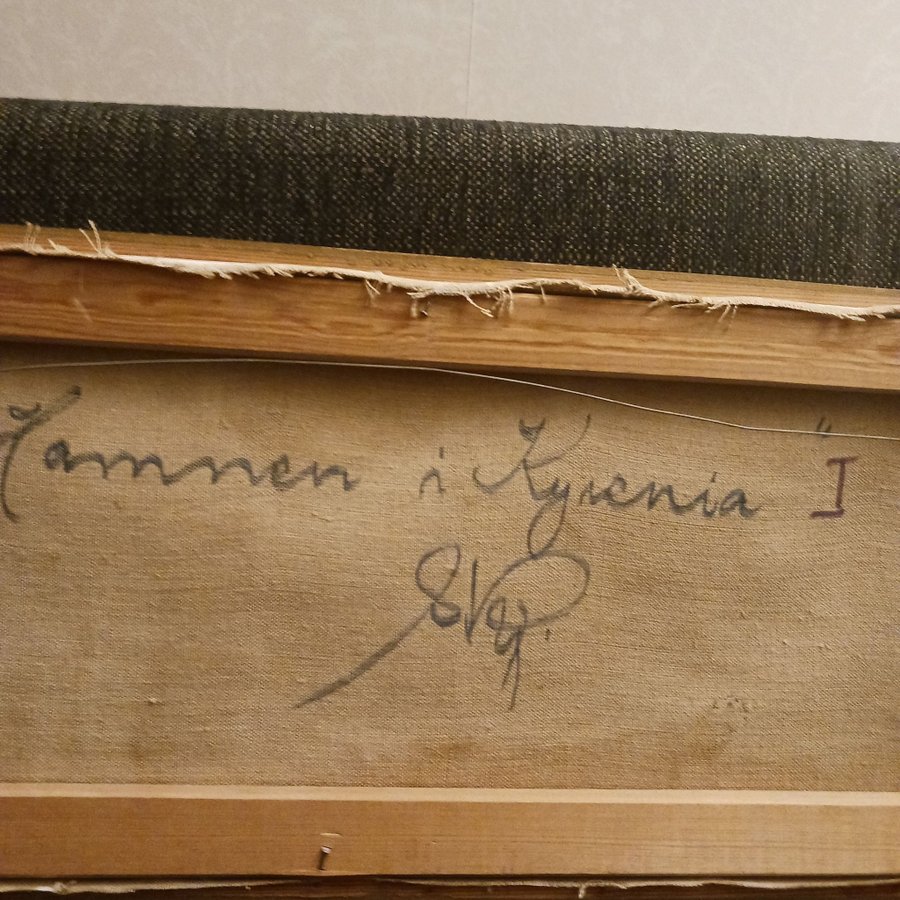 Hamnen i Kyrenia" I